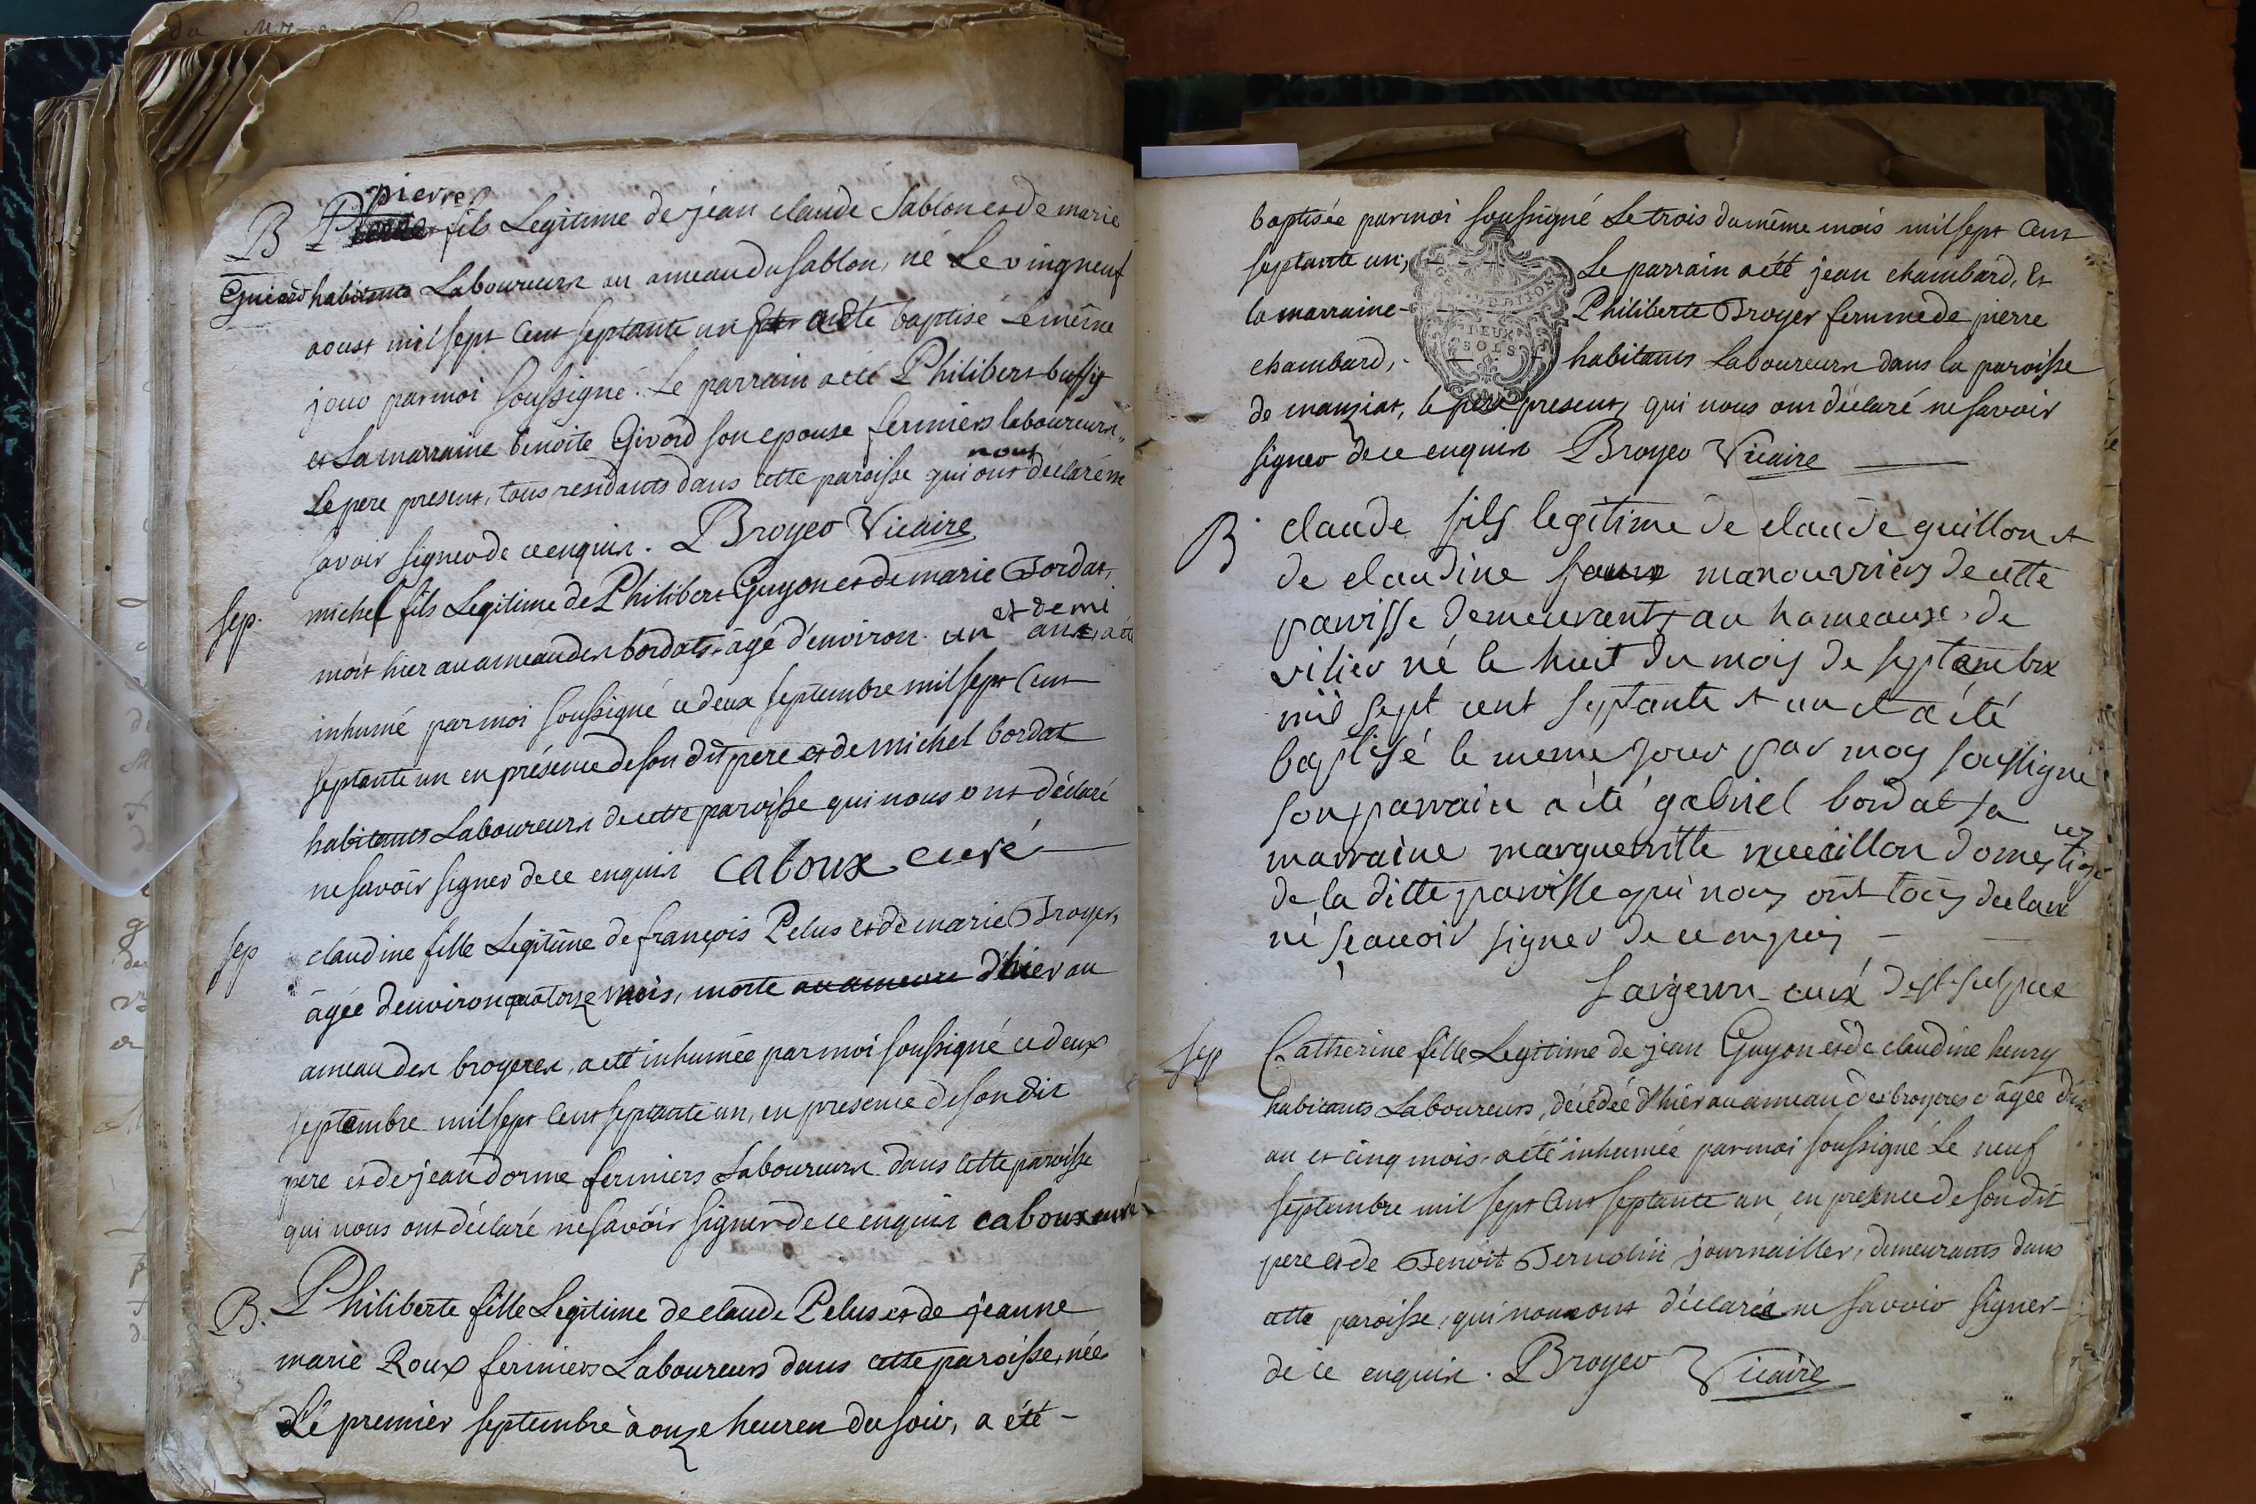 B pierre
fils Legitime de jean claude Sablon et de marie
Guierd habitants Laboureurs au ameau du Sablon, né Le vingneuf
aoust mil sept Cent septante un a été baptisé Le même
jour par moi soussigné. Le parrain a été Philibert buffy
et La marraine benoite Givord son epouse fermiers laboureurs,
nous
Le pere present, tous residants dans cette paroisse qui ont déclaré ne
savoir signer de ce enquis. Broyer Vicaire
sep. michel fils Legitime de Philibert Guyon et de marie Bordat,
et demi
mort hier au ameau des bordats, âgé d'environ un an, a été
inhumé par moi soussigné ce deux septembre mil sept Cent
septante un en présence de son dit pere et de michel bordat
habitants Laboureurs de cette paroisse qui nous ont déclaré
ne savoir signer de ce enquis caboux curé
sep claudine fille Legitime de françois Pelus et de marie Broyer,
âgée d'environ quatorze mois, morte au ameau d'hier au
ameau des broyeres, a été inhumée par moi soussigné ce deux
septembre mil sept Cent septante un, en presence de son dit
pere et de jean dorme fermiers Laboureurs dans cette paroisse
qui nous ont déclaré ne savoir signer de ce enquis caboux curé
B. Philiberte fille Legitime de claude Pelus et de jeanne
marie Roux fermiers Laboureurs dans cette paroisse, née
Le premier septembre à onze heures du soir, a été -
baptisée par moi soussigné Le trois du même mois mil sept Cent
septante un, Le parrain a été jean chambard, et
la marraine - Philiberte Broyer femme de pierre
chambard, - habitants Laboureurs dans la paroisse
DEUX
SOLS
de manziat, le pere present, qui nous ont déclaré ne savoir
signer de ce enquis Broyer Vicaire
B claude fils legitime de claude guillon et
de claudine manouvriers de cette
paroisse demeurants au hameaux de
vilier né le huit du mois de septembre
mil sept cent septante et un et a été
baptisé le meme jour par moy soussigné
son parrain a été gabriel bordat sa
marraine margueritte domestiques
de la ditte paroisse qui nous ont tous declaré
ne scavoir signer de ce enquis -
curé de st sulpice
sep Catherine fille Legitime de jean Guyon et de claudine henry
habitants Laboureurs, décédée d'hier au ameau des broyeres âgée d'un
an et cinq mois, a été inhumée par moi soussigné Le neuf
septembre mil sept Cent septante un, en presence de son dit
pere et de Benoit journailler, demeurants dans
cette paroisse, qui nous ont déclaré ne savoir signer
de ce enquis. Broyer Vicaire